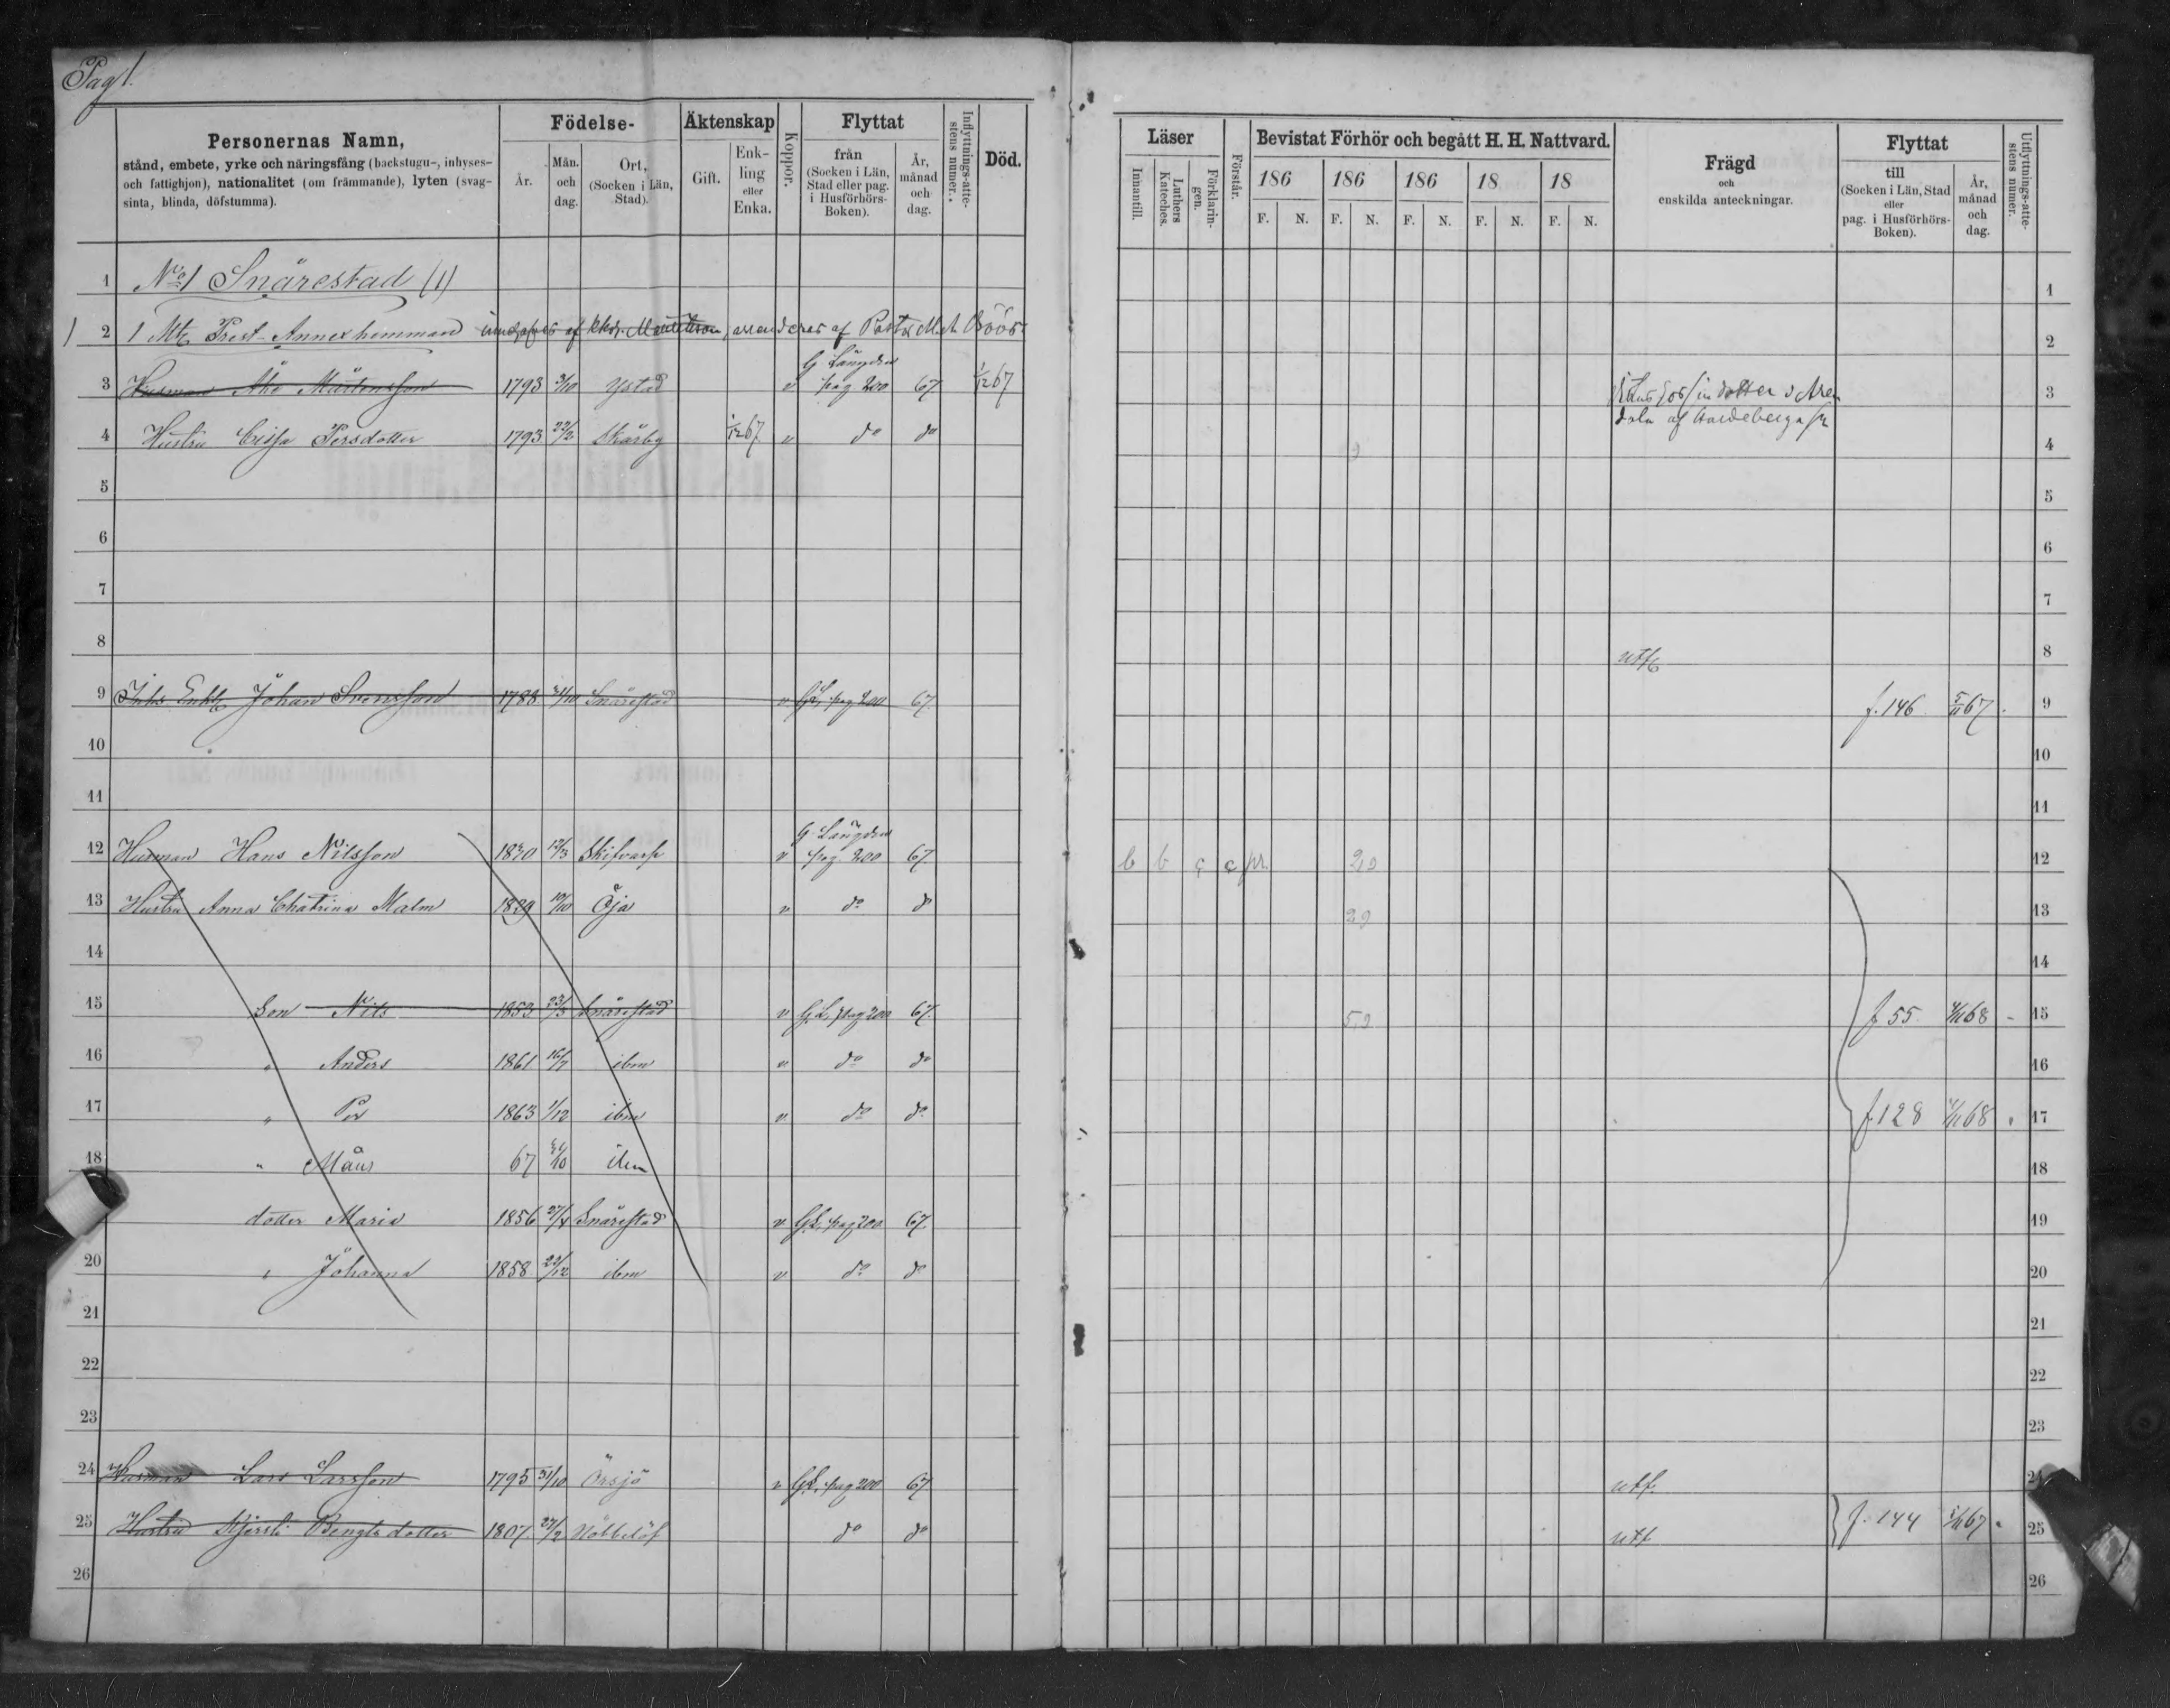 Pag 1.
Personernas Namn,
stånd, embete, yrke och näringsfång (backstugu-, inhyses-
och fattighjon), nationalitet (om främmande), lyten (svag-
sinta, blinda, döfstumma).
Födelse-
År.
Mån. och dag.
Ort, (Socken i Län, Stad).
Äktenskap
Gift.
Enk- ling eller Enka.
Koppor.
Flyttat
från (Socken i Län, Stad eller pag. i Husförhörs- Boken).
År, månad och dag.
Inflyttnings-atte- stens numer.
Död.
1 No 1 Snårestad (1)
1 2 1 Mtl Prest-Annexhemman arrenderas af
3 Husman Åke Mårtensson 1793 3/10 Ystad v G Längden pag. 200 67 1/12 67
4 Hustru Cissa Persdotter 1793 22/2 Skårby 1/12 67 v do do
5
6
7
8
9 Inhs Enkl Johan Svensson 1788 21/10 Snårestad v GL, pag 200 67.
10
11
12 Husman Hans Nilsson 1820 12/3 Skifvarp v G Längden pag. 200 67.
13 Hustru Anna Chatrina Malm 1829 10/10 Öja v do do
14
15 Son Nils 1853 23/3 Snårestad v G.L, pag 200 67.
16 " Anders 1861 16/7 ibm v do do
17 " Per 1863 1/12 ibm v do do
18 " Måns 67 21/10 ibm
dotter Maria 1856 27/4 Snårestad v G.L, pag 200 67.
20 " Johanna 1858 22/12 ibm v do do
21
22
23
24 Husman Lars Larsson 1795 31/10 Örsjö v G.L. pag 200 67
25 Hustru Kjersti Bengtsdotter 1807 27/2 Nöbbelöf do do
26
Läser
Innantill.
Luthers Kateches.
Förklarin- gen.
Förstår.
Bevistat Förhör och begått H. H. Nattvard.
186 186 186 18 18
F. N. F. N. F. N. F. N. F. N.
Frägd
och
enskilda anteckningar.
Flyttat
till (Socken i Län, Stad eller pag. i Husförhörs- Boken).
År, månad och dag.
Utflyttnings-atte- stens numer.
1
2
3
4
5
6
7
8
9 f. 146 5/11 67
10
11
12 b b
13
14
15 f 55 68
16
17 f 128 68
18
19
20
21
22
23
24 utf.
25 utf f. 144 67
26